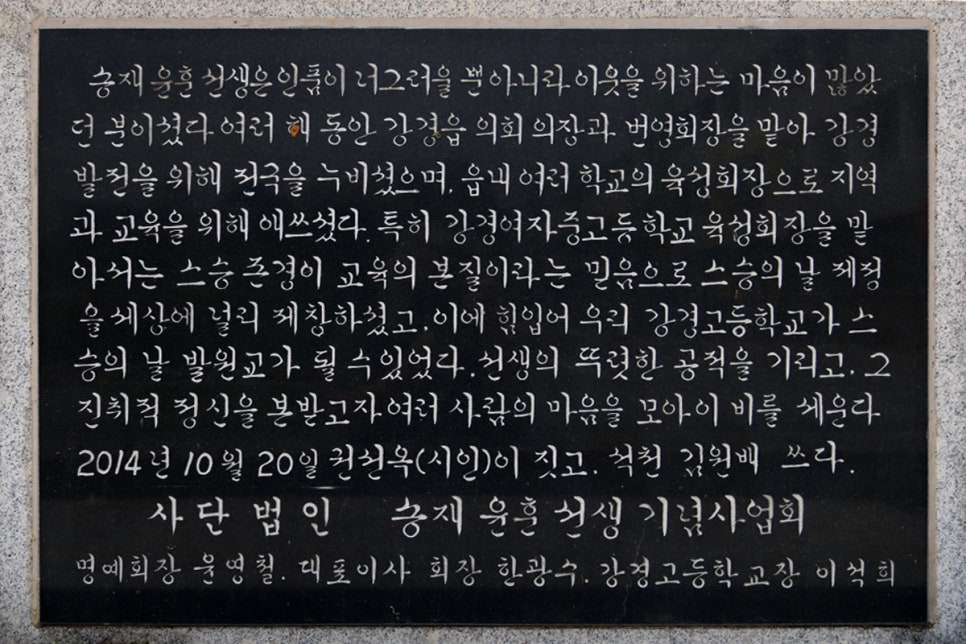 송재 윤훈 선생은 인품이 너그러울 뿐 아니라 이웃을 위하는 마음이 많았
던 분이셨다 여러 해 동안 강경읍 의회 의장과 번영회장을 맡아 강경
발전을 위해 전국을 누비셨으며, 읍내 여러 학교의 육성회장으로 지역
과 교육을 위해 애쓰셨다. 특히 강경여자중고등학교 육성회장을 맡
아서는 스승 존경이 교육의 본질이라는 믿음으로 스승의 날 제정
을 세상에 널리 제창하셨고, 이에 힘입어 우리 강경고등학교가 스
승의 날 발원교가 될 수 있었다. 선생의 뚜렷한 공적을 기리고, 그
진취적 정신을 본받고자 여러 사람의 마음을 모아 이 비를 세운다
2014년 10월 20일 권선옥(시인)이 짓고, 석천 김원배 쓰다.
사단법인 송재 윤훈 선생 기념사업회
명예회장 윤영철. 대표이사 회장 한광수. 강경고등학교장 이석희